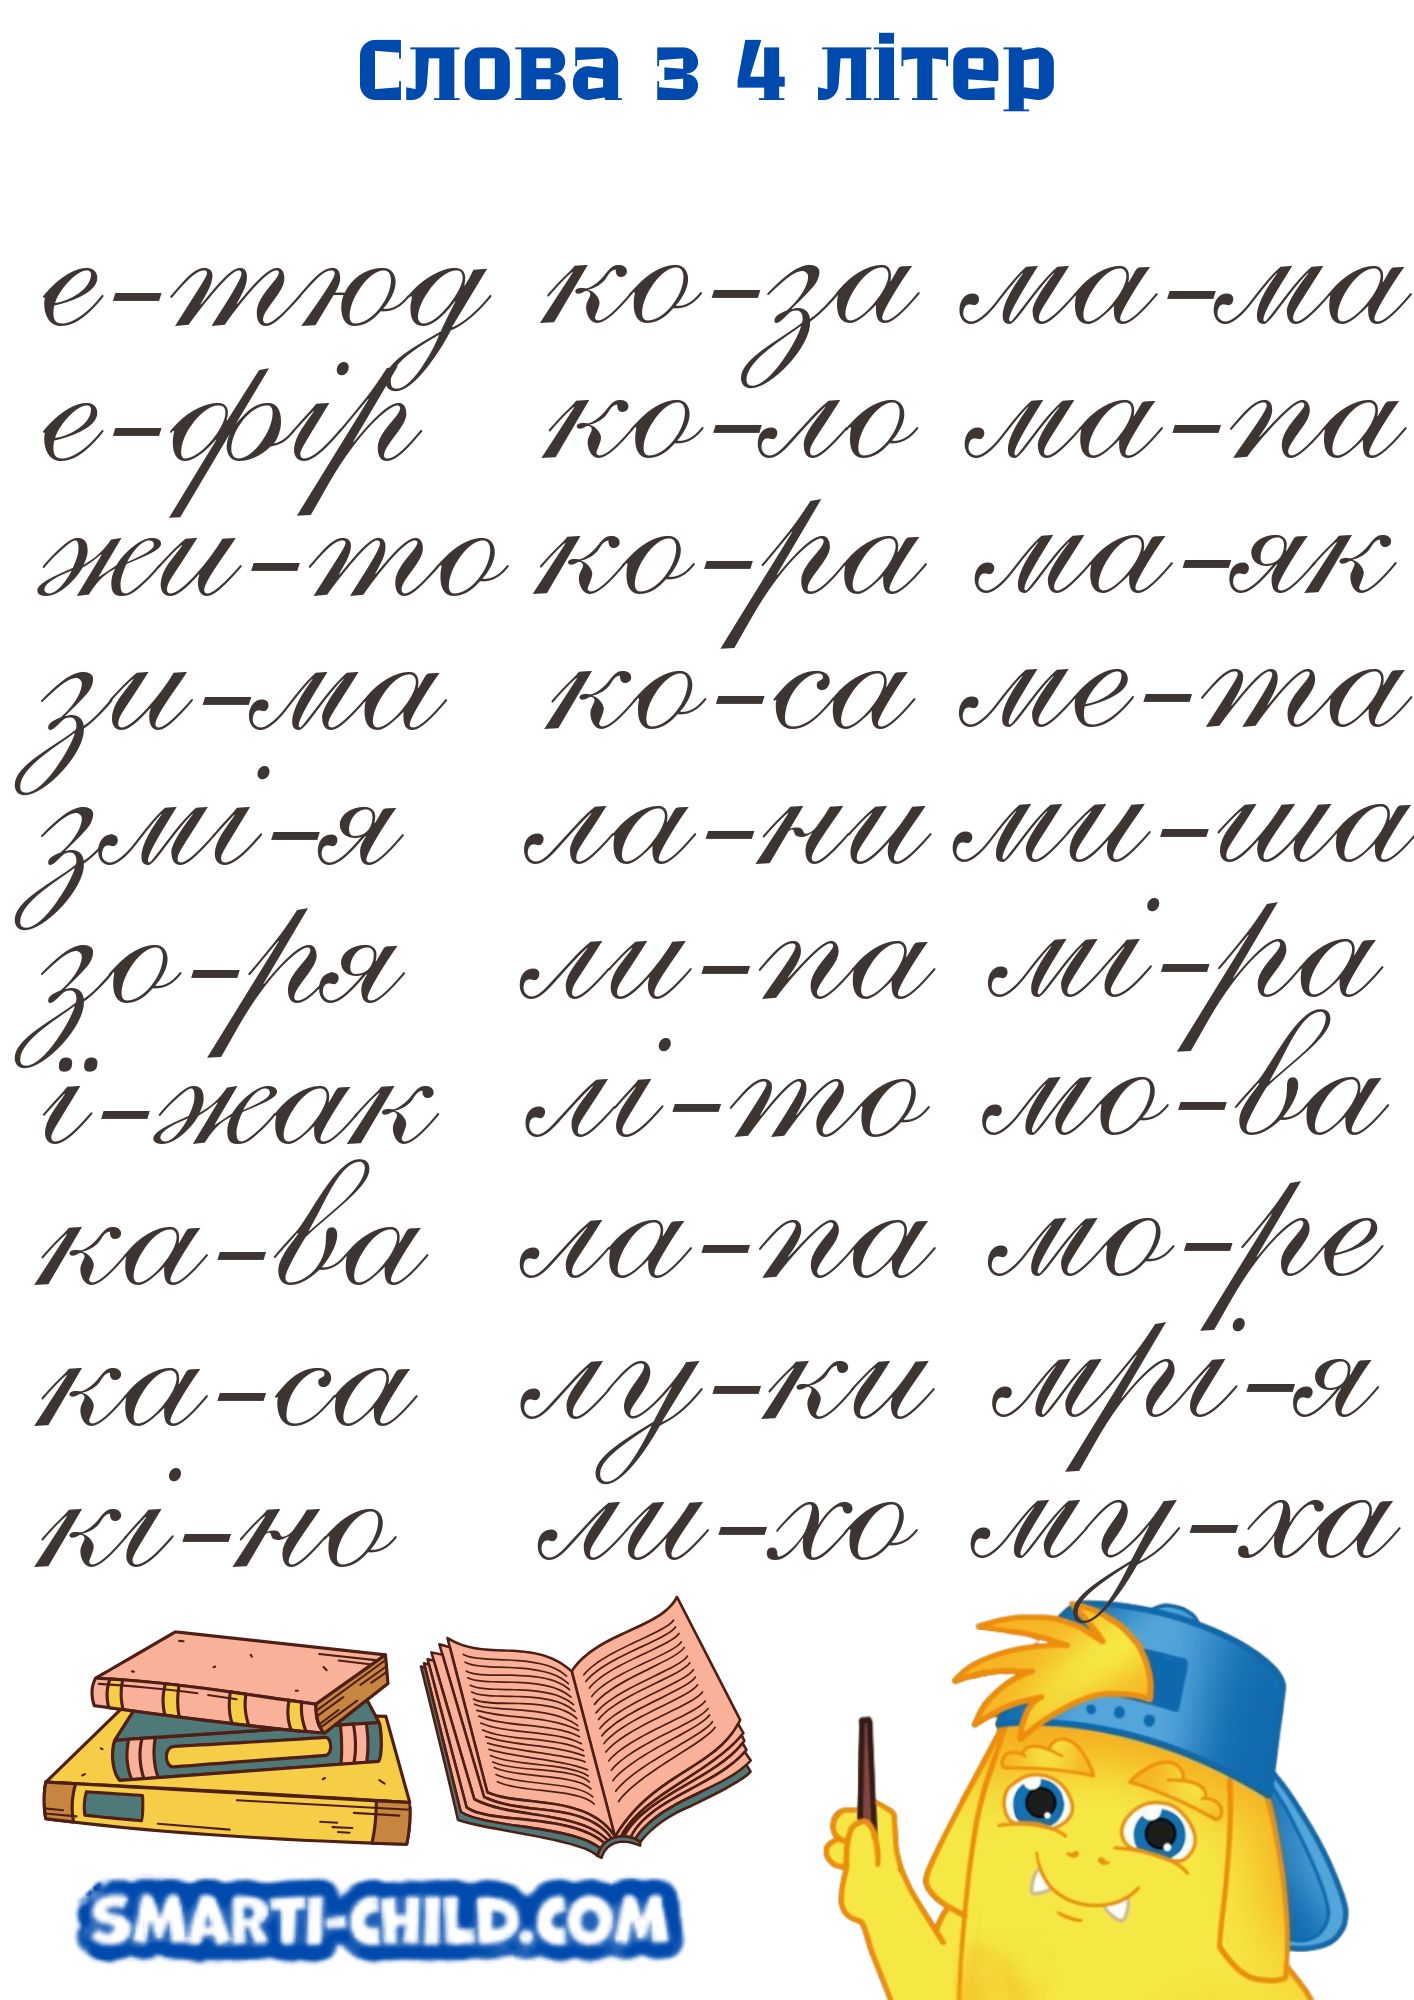 Слова з 4 літер
е-тюд ко-за ма-ма
е-фір ко-ло ма-па
жи-то ко-ра ма-як
зи-ма ко-са ме-та
змі-я ла-ни ми-ша
зо-ря ли-па мі-ра
ї-жак лі-то мо-ва
ка-ва ла-па мо-ре
ка-са лу-ки мрі-я
кі-но ли-хо му-ха
SMARTI-CHILD.COM